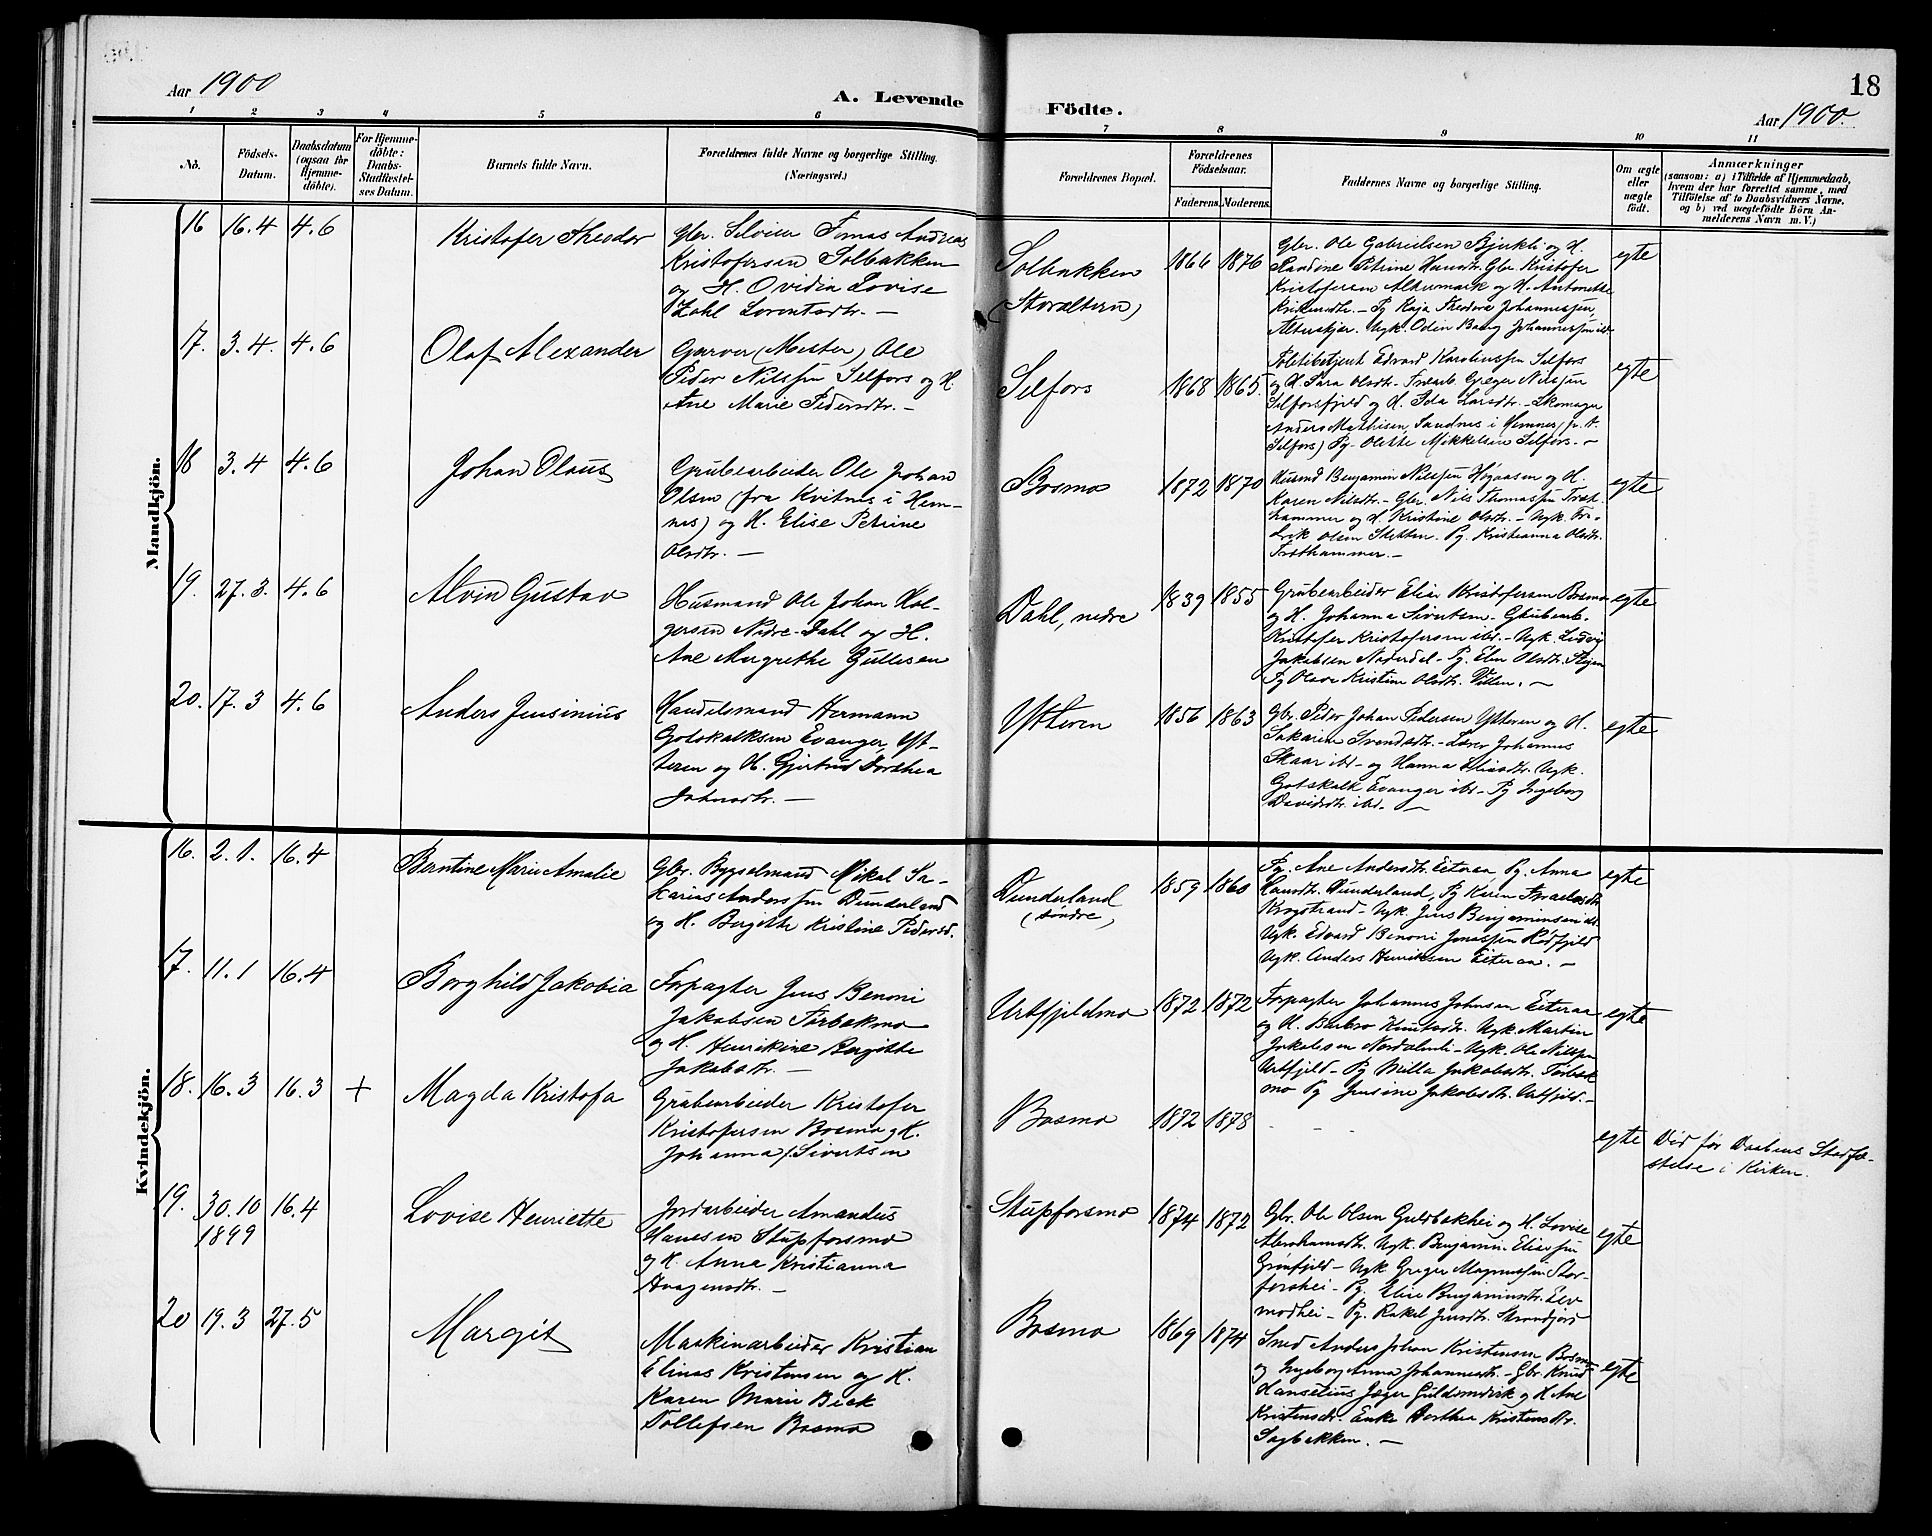 Aar 1900
A. Levende
Födte.
18
Aar 1900.
1 2 3 4 5 6 7 8 9 10 11
No.
Födsels-
Datum.
Daabsdatum
(ogsaa for
Hjemme-
döbte).
For Hjemme-
döbte:
Daabs-
Stadfæstel-
ses Datum.
Barnets fulde Navn.
Forældrenes fulde Navne og borgerlige Stilling.
(Næringsvei.)
Forældrenes Bopæl.
Forældrenes
Födselsaar.
Faderens.
Moderens.
Faddernes Navne og borgerlige Stilling.
Om ægte
eller
uægte
födt.
Anmærkninger
(saasom: a) i Tilfælde af Hjemmedaab,
hvem der har forrettet samme, med
Tilföielse af to Daabsvidners Navne,
og b) ved uægtefödte Börn An-
melderens Navn m. V.)
Mandkjön.
16 16.4 4.6 Kristofer Theodor
Gbr. Selveier Tomas Andreas
Kristofersen Solbakken
og H. Ovidia Lovise
Zahl Lorentsdtr. —
Solbakken
(Storaltern)
1866 1876
Gbr. Ole Gabrielsen Bjerkli og H.
Randine Petrine Hansdtr. Gbr. Kristofer
Kristofersen Altermark og H. Antonette
— Pg Kaja Theodora Johannessen,
Alterskjær. Ugk. Odin Baarg Johannessen ibd
egte
17. 3.4. 4.6 Olaf Alexander
Garver (Mester) Ole
Peder Nilssen Selfors og H.
Ane Marie Pedersdtr. —
Selfors
1868 1865.
Politibetjent Edvard Karoliussen Selfors
og H. Sara Olsdtr. Greger Nilssen
Selforsfjeld og H. Larsdtr. — Skomager
Anders Mathisen, Sandnes i Hemnes,
Selfors) Pg. Olette Mikkelsen Selfors. —
egte
18 3.4 4.6 Johan Olaus
Grubearbeider Ole Johan
Olsen (fra Kvitnes i Hem-
nes) og H. Elise Petrine
Olsdtr. —
Bosmo
1872 1870
Husmd Benjamin Nilssen Høgaasen og H.
Karen Nilsdtr. — Gbr. Nils Thomassen Træt-
hammer og H. Kristine Olsdtr. — Ugk. Fre-
drik Olsen Sletten. Pg. Kristianna Olsdtr.
Træthammer. —
egte
19. 27.3. 4.6 Alvin Gustav
Husmand Ole Johan Hol-
gersen Nedre-Dahl og H.
Ane Margrethe Gullesen
Dahl, nedre
1839 1855
Grubearbeider Elias Kristofersen Bosmo
og H. Johanna Sivertsen — Grubearb.
Kristofer Kristofersen ibd. — Ugk. Ludvig
Jakobsen Nederdal — Pg. Olsdtr.
Pg Olava Kristine Olsdtr. —
egte
20. 17.3 4.6 Anders Jensinius
Handelsmand Hermann
Gotskalksen Evanger, Yt-
teren og H. Gjertrud Dorthea
Johnsdtr. —
Ytteren
1856 1863
Gbr. Peder Johan Pedersen Ytteren og H.
Sakarine Svendsdtr. — Lærer Johannes
Skaar ibd — og Hanna Eliasdtr. Ugk.
Gotskalk Evanger ibd — Pg Ingeborg
Davidsdtr. ibd. —
egte
Kvindekjön.
16. 2.1. 16.4 Berntine Marie Amalie
Gbr. Bygselmand Mikal Sa-
karias Anderssen Dunderland
og H. Bergitte Kristine Pedersd.
Dunderland
(søndre)
1859 1860
Pg. Ane Andersdtr. Eiteraa Pg. Anna
Hansdtr. Dunderland, Pg Karen Israelsdtr.
Krogstrand — Ugk. Jens Benjaminsen ibd
Ugk. Edvard Benoni Jonassen Rødfjeld
Ugk. Anders Henriksen Eiteraa. —
egte
17. 11.1 16.4 Borghild Jakobia
Forpagter Jens Benoni
Jakobsen Tørbakmo
og H. Henrikine Bergitte
Jakobsdtr. —
Urtfjeldmo
1872 1872
Forpagter Johannes Johnsen Eiteraa
og H. Barbro Knutsdtr. Ugk. Martin
Jakobsen Nordalsnli — Ugk. Ole Nilssen
Urtfjeld — Pg Milla Jakobsdtr. Tørbak
mo Pg Jensine Jakobsdtr. Urtfjeld. —
egte
18. 16.3 16.3 + Magda Kristofa
Grubearbeider Kristofer
Kristofersen Bosmo og H.
Johanna Sivertsen
Bosmo
1872 1878
- - -
egte
Død før Daabens Stadfæ-
stelse i Kirken.
19. 30.10 16.4 Lovise Henriette
1899
Jordarbeider Amandus
Hansen Stupforsmo
og H. Anna Kristianna
Haagensdtr. —
Stupforsmo
1874 1872
Gbr. Ole Olsen Guldbakhei og H. Lovise
Abrahamsdtr. Ugk. Benjamin Eliassen
Grønfjeld — Ugk Greger Magnussen Stor-
forshei — Pg. Elise Benjaminsdtr. Elv
modhei — Pg. Rakel Jensdtr. Strandjord
egte
20 19.3 27.5 Margit
Maskinarbeider Kristian
Elinas Kristensen og H.
Karen Marie Beck
Tollefsen Bosmo
Bosmo
1869 1874
Smed Anders Johan Kristensen Bosmo
og Ingeborg Anna Johannesdtr. — Gbr. Knud
Hanselius Jæger Guldsmedvik og H Ane
Kristensdtr. Enke Dorthea Kristensdtr.
Sagbakken. —
egte